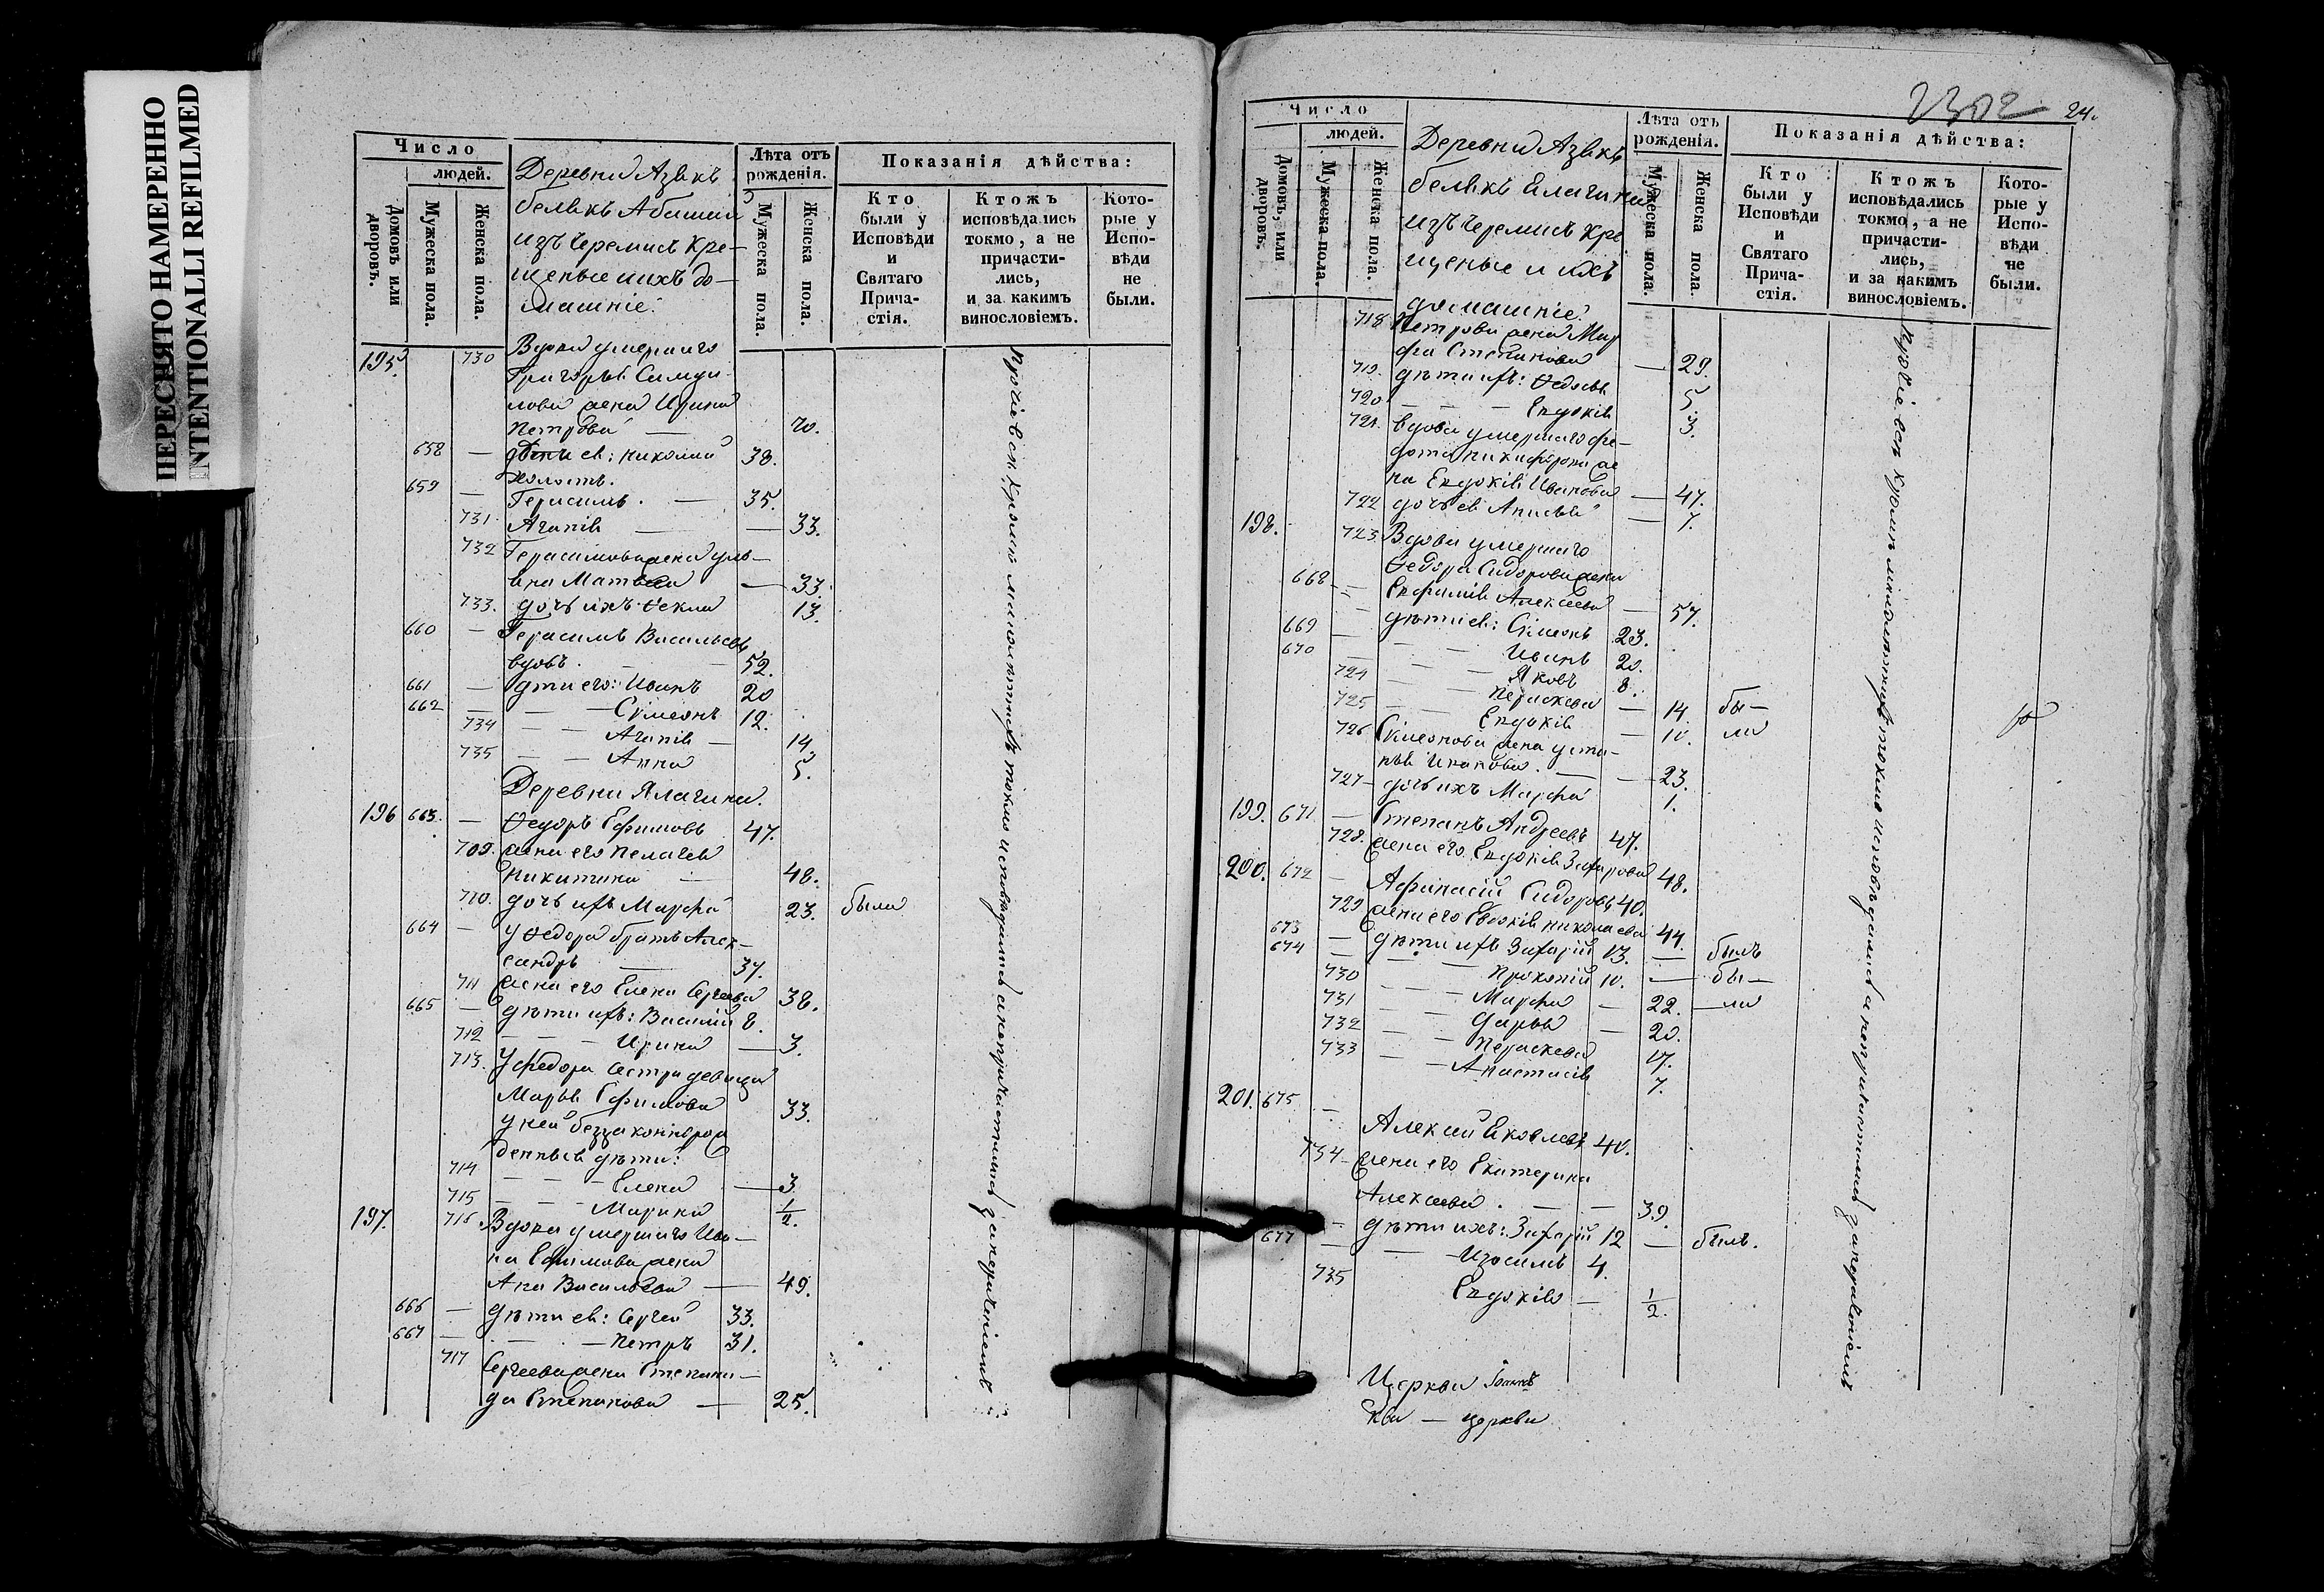 ПЕРЕСНЯТО НАМЕРЕННО
INTENTIONALLI REFILMED
Число
людей.
Домовъ или дворовъ.
Мужеска пола.
Женска пола.
Деревни Азъякъ
белякъ
изъ черемисъ кре-
щеные и ихъ до-
машніе.
Лѣта отъ рожденія.
Мужеска пола.
Женска пола.
Показанія дѣйства:
Кто были у Исповѣди и Святаго Прича-стія.
Ктожъ исповѣдались токмо, а не причасти-лись, и за какимъ винословіемъ.
Кото-рые у Испо-вѣди не были.
195. 730 Вдова умершаго
Григорья
жена Ирина
Петрова — 70.
658 — дѣти ея: Николай 38.
холостъ.
659 — Герасимъ. — 35.
731 Агапія — — 33.
732 Герасимова жена
Матвеева — 33.
733. дочь ихъ Ѳекла 13.
660 — Герасимъ Васильевъ
вдовъ. — 52.
661 — дѣти его: Иванъ 20
662 — — — Сѵмеонъ 12.
734 — — Агапія — 14.
735 — — Анна 5.
Деревни Ялагина.
196 663. — Ѳедоръ Ефимовъ 47.
709. жена его Пелагея
Никитина — 48.
710. дочь ихъ Марфа 23. была
664 — у Ѳедора братъ Алек-
сандръ — 37.
711 жена его Елена Сергеева 38.
665 — дѣти ихъ: Василій 8.
712 — — — Ирина — 3.
713. У Федора сестра девица
Марья Ефимова 33.
у ней беззаконнорож
денныя дѣти:
714 — — — Елена — 3.
715 — — — Марина 1/2.
197. 716. Вдова умершаго Ива-
на Ефимова жена
Анна Васильева — 49.
666 — дѣти ея: Сергей 33.
667 — — — Петръ 31.
717 Сергеева жена Степани-
да Степанова — 25.
Прочіе всѣ кромѣ малолѣтнихъ токмо исповѣдались а не причастились за нераченіемъ
24.
Число
людей.
Домовъ, или дворовъ.
Мужеска пола.
Женска пола.
Деревни Азъякъ
белякъ Елагина
изъ черемисъ кре
щеные и ихъ
домашніе.
Лѣта отъ рожденія.
Мужеска пола.
Женска пола.
Показанія дѣйства:
Кто были у Исповѣди и Святаго Прича-стія.
Ктожъ исповѣдались токмо, а не причасти-лись, и за какимъ винословіемъ.
Кото-рые у Испо-вѣди не были.
718 Петрова жена Мар
фа Степанова — 29.
719. дѣти ихъ: Ѳедосья 5.
720 — — — Евдокія 3.
721. вдова умершаго Фе-
дота Никифорова же
на Евдокія Иванова — 47.
722 дочь ея Анисья — 7.
198. 723. Вдова умершаго
Ѳедора Сидорова жена
Евфимія Алексеева — 57.
668 — дѣти ея: Сѵмеонъ 23.
669 — — — Иванъ 20.
670 — — — Яковъ 8.
724 — — Параскева — 14. бы-
725 — — Евдокія — 10. ли
726 Сѵмеонова жена Усти-
нья Иванова. — — 23.
727 — дочь ихъ Марфа 1.
199. 671 — Степанъ Андреевъ 47.
728. жена его Евдокія Захарова 48.
200. 672 — Афанасій Сидоровъ 40.
729 жена его Евдокія Николаева 44.
673 — дѣти ихъ Захарій 13. — былъ
674 — — — Прокопій 10. — бы-
730 — — Марфа — 22. — ли
731 — — Дарья — 20.
732 — — Параскева 17.
733 — — Анастасія 7.
201. 675 — Алексѣй Яковлевъ 40.
734 — жена его Екатерина
Алексеева. — — 39.
— дѣти ихъ: Захарій 12 — былъ.
677 — — Изосимъ 4.
735 Евдокія — 1/2.
Прочіе всѣ кромѣ малолѣтнихъ токмо исповѣдались а не причастились за нераченіемъ
Церкви
кви — церкви